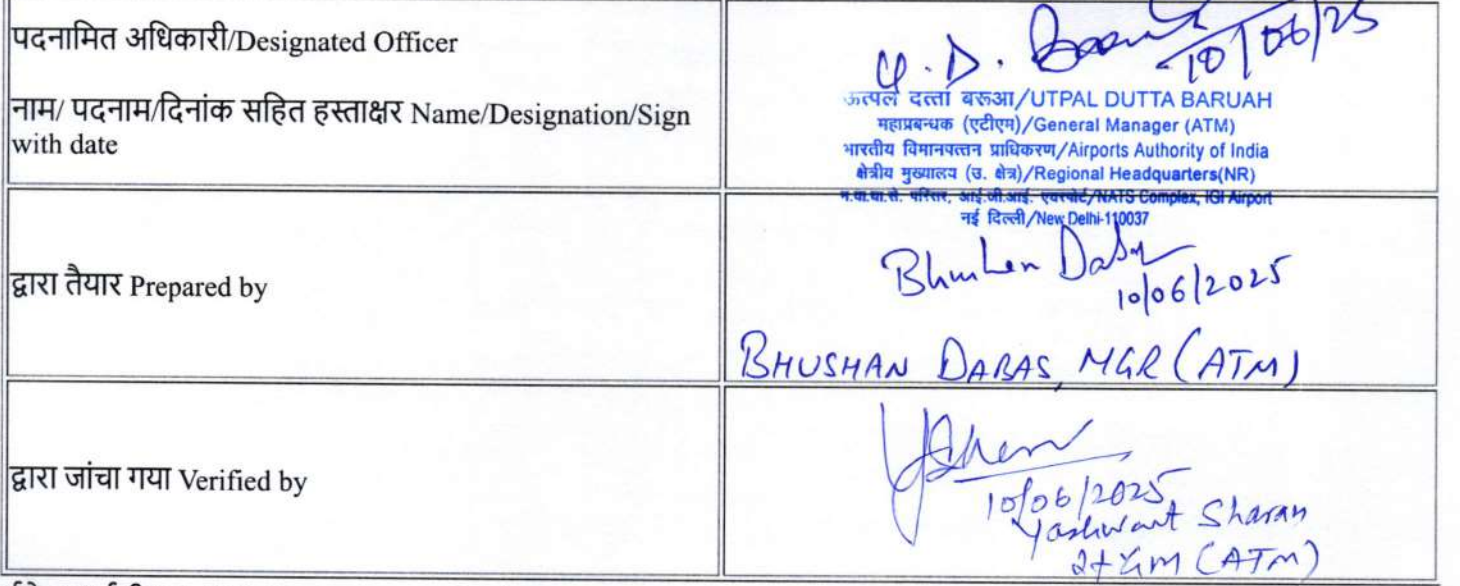 पदनामित अधिकारी/Designated Officer
नाम/ पदनाम/दिनांक सहित हस्ताक्षर Name/Designation/Sign
with date
U. D. Baruah
10/06/25
ऊत्पल दत्ता बरूआ/UTPAL DUTTA BARUAH
महाप्रबन्धक (एटीएम)/General Manager (ATM)
भारतीय विमानपत्तन प्राधिकरण/Airports Authority of India
क्षेत्रीय मुख्यालय (उ. क्षेत्र)/Regional Headquarters(NR)
परिसर, आई.जी.आई. एयरपोर्ट/NATS Complex, IGI Airport
नई दिल्ली/New Delhi-110037
द्वारा तैयार Prepared by
Bhushan Dabas
10/06/2025
BHUSHAN DABAS, MGR (ATM)
द्वारा जांचा गया Verified by
10/06/2025
Yashwant Sharan
(ATM)